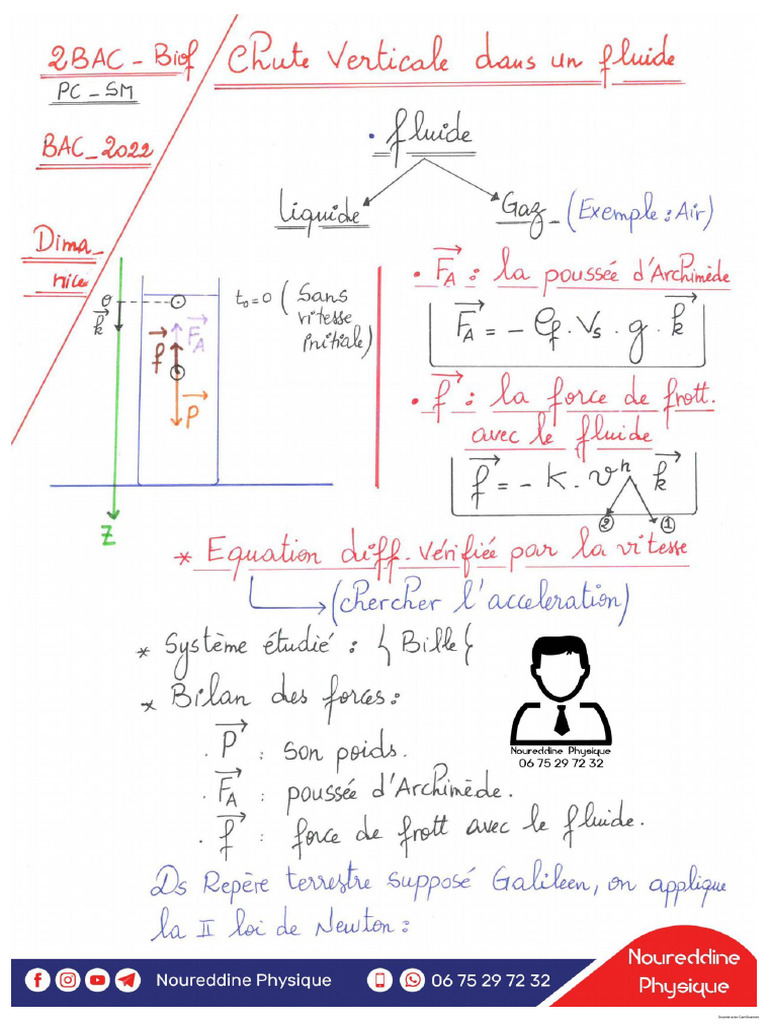 2BAC - Biof
PC - SM
BAC_2022
Dima_
nice
Chute Verticale dans un fluide
• fluide
Liquide
Gaz_ (Exemple: Air)
O
k
Z
t₀=0 (Sans
vitesse
initiale)
F_A
f
P
• F_A : la poussée d'Archimède
F_A = - ρf . Vs . g . k
• f : la force de frott.
avec le fluide
f = - K . vⁿ k
② ①
* Equation diff. vérifiée par la vitesse
(chercher l'acceleration)
* Système étudié : { Bille }
* Bilan des forces :
. P : son poids.
. F_A : poussée d'Archimède.
. f : force de frott avec le fluide.
Noureddine Physique
06 75 29 72 32
Ds Repère terrestre supposé Galileen, on applique
la II loi de Newton :
Noureddine Physique
06 75 29 72 32
Noureddine
Physique